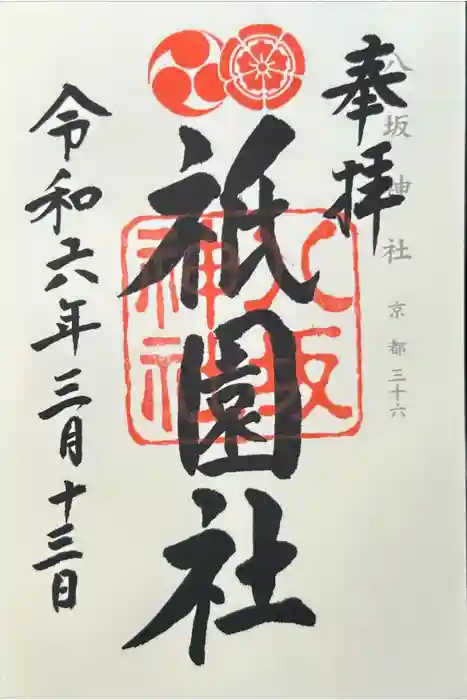 奉拝
八坂神社 京都三十六
祇園社
八坂
神社
令和六年三月十三日